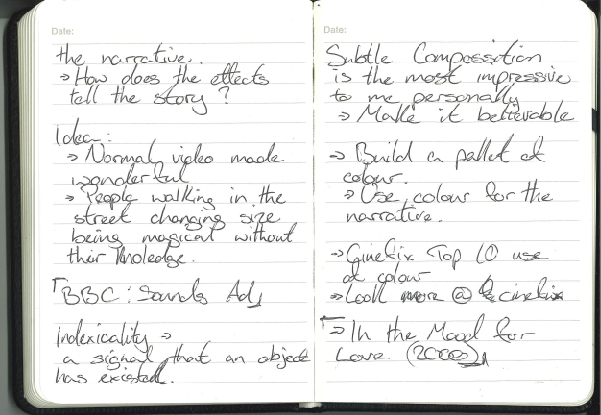 Date:
the narrative..
→ How does the effects
tell the story?
Idea:
→ Normal video made
wonderful
→ People walking in the
street changing size
being magical without
their knoledge.
BBC: Sounds Ad
Indexicality →
a signal that an object
has existed.
Date:
Subtle Compossition
is the most impressive
to me personally
→ Make it believable
→ Build a pallet of
colour.
→ Use colour for the
narrative.
→ Cinefix Top 10 use
of colour
→ Look more @ cinefix
→ In the Mood for
Love. (2000)